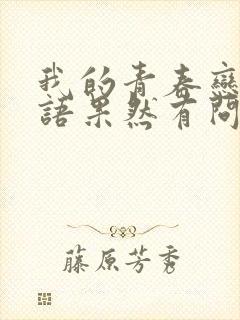 我的青春戀
語果然有問
藤原芳秀